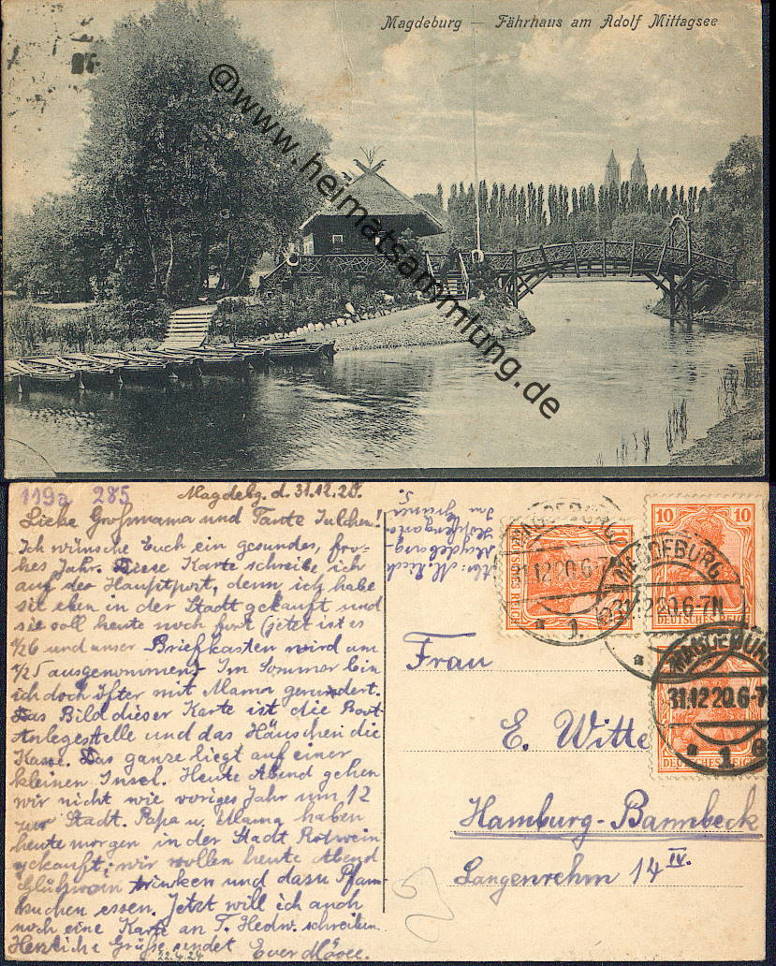 Magdeburg — Fährhaus am Adolf Mittagsee
@www.heimatsammlung.de
119a 285
Magdebg. d. 31.12.20.
Liebe Großmama und Tante Julchen!
Ich wünsche Euch ein gesundes, fro-
hes Jahr. Diese Karte schreibe ich
auf der Hauptport, denn ich habe
sie eben in der Stadt gekauft und
sie soll heute noch fort (jetzt ist es
½6 und unser Briefkasten wird um
½5 ausgenommen. Im Sommer bin
ich doch öfter mit Mama gerudert.
Das Bild dieser Karte ist die Boot-
Anlegestelle und das Häuschen die
Kasse. Das ganze liegt auf einer
kleinen Insel. Heute Abend gehen
wir nicht wie voriges Jahr um 12
zur Stadt. Papa u. Mama haben
heute morgen in der Stadt Rotwein
gekauft; wir wollen heute Abend
Glühwein trinken und dazu Pfann-
kuchen essen. Jetzt will ich auch
noch eine Karte an T. Hedw. schreiben.
Herzliche Grüße sendet Euer
22.4.24
Magdeburg-
MAGDEBURG
31.12.20.6-7N
* 1.
MAGDEBURG
31.12.20.6-7N
MAGDEBURG
31.12.20.6-7
* 1
10 10
DEUTSCHES REICH
DEUTSCHES REICH
DEUTSCHES REICH
Frau
E. Witte
Hamburg-Barmbeck
Langenrehm 14 IV.
25